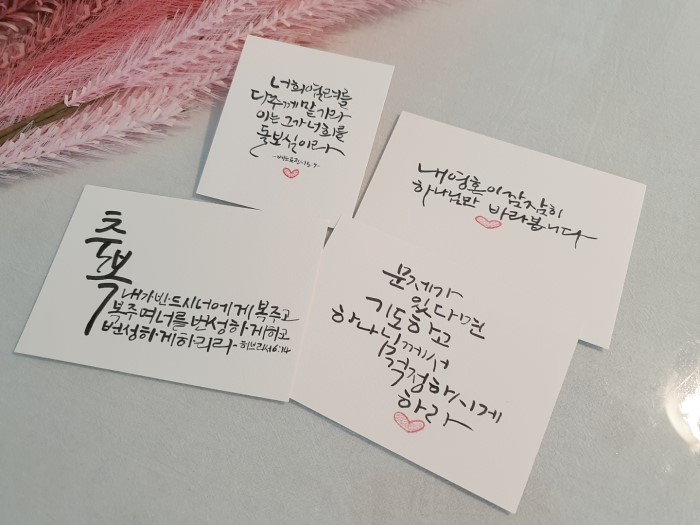 너희 염려를
다 주께 맡기라
이는 그가 너희를
돌보심이라
-베드로전서5:7-
내 영혼이 잠잠히
하나님만 바라봅니다
축복
내가 반드시 너에게 복주고
복주며 너를 번성하게하고
번성하게하리라 -히브리서6:14
문제가
있다면
기도하고
하나님께서
걱정하시게
하라